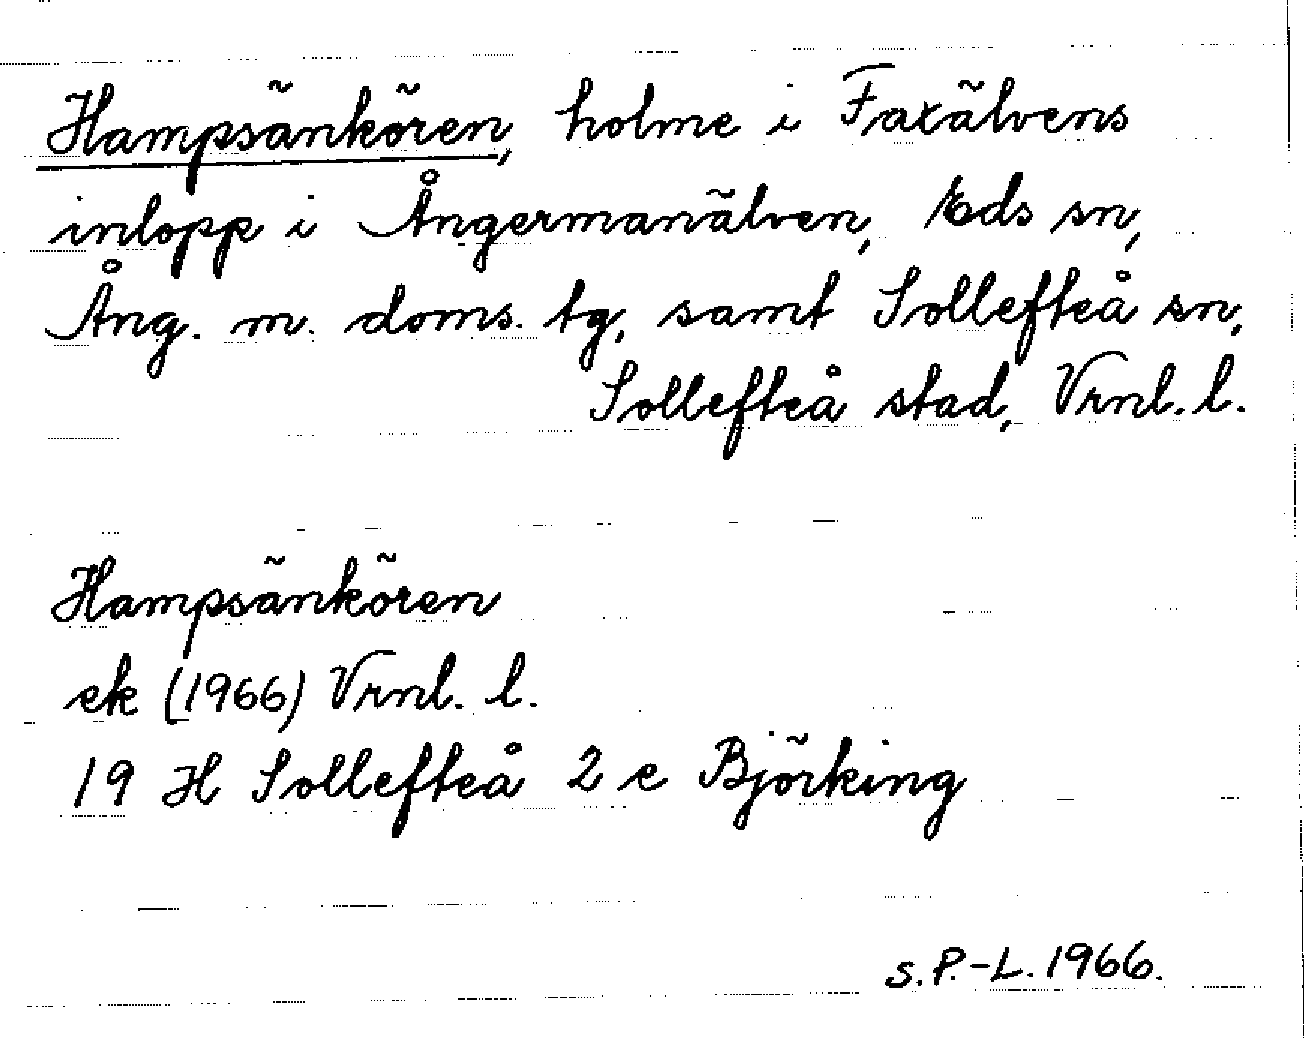 Hampsänkören, holme i Faxälvens
inlopp i Ångermanälven, Eds sn,
Ång. m. doms. tg, samt Sollefteå sn,
Sollefteå stad, Vrnl. l.
Hampsänkören
ek (1966) Vrnl. l.
19 H Sollefteå 2 e Björking
s. P.-L. 1966.